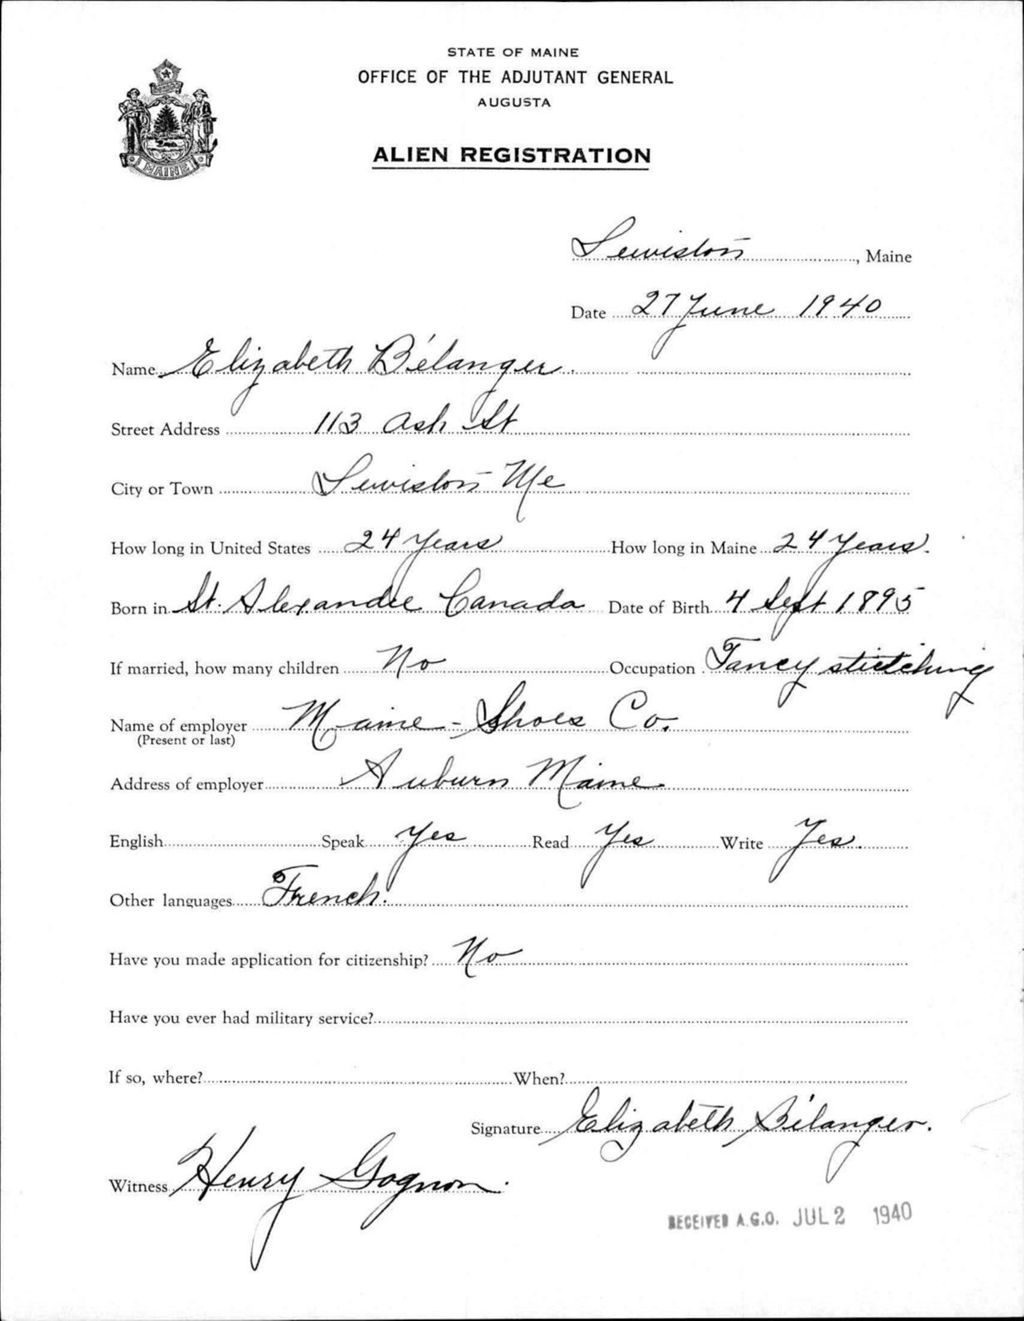 STATE OF MAINE
OFFICE OF THE ADJUTANT GENERAL
AUGUSTA
ALIEN REGISTRATION
MAINE
Lewiston, Maine
Date 27 June 1940
Name Elizabeth Bélanger.
Street Address 113 Ash St
City or Town Lewiston Me
How long in United States 24 Years How long in Maine 24 Years.
Born in St. Alexandre Canada Date of Birth 4 Sept 1895
If married, how many children No Occupation Fancy stictching
Name of employer Maine-Shoes Co.
(Present or last)
Address of employer Auburn Maine
English Speak Yes Read Yes Write Yes.
Other languages French.
Have you made application for citizenship? No
Have you ever had military service?
If so, where? When?
Signature Elizabeth Bélanger.
Witness Henry Gagnon.
RECEIVED A.G.O. JUL 2 1940